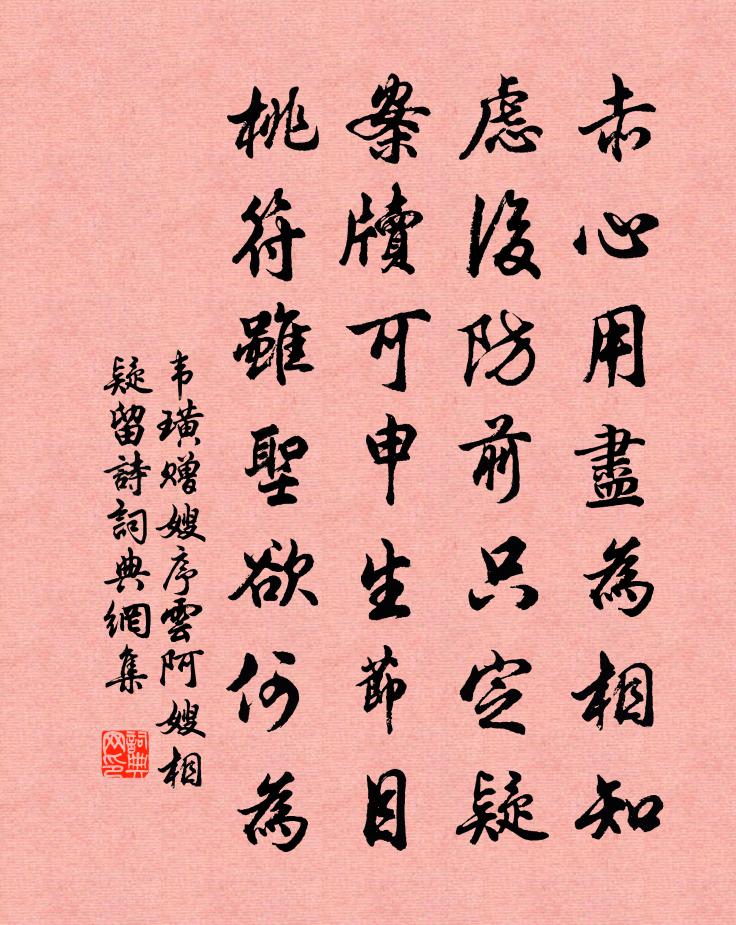 赤心用盡為相知
慮後防前只定疑
案牘可申生節目
桃符雖聖欲何為
韦璜赠嫂序雲阿嫂相
疑留詩詞典網集
詞典网印